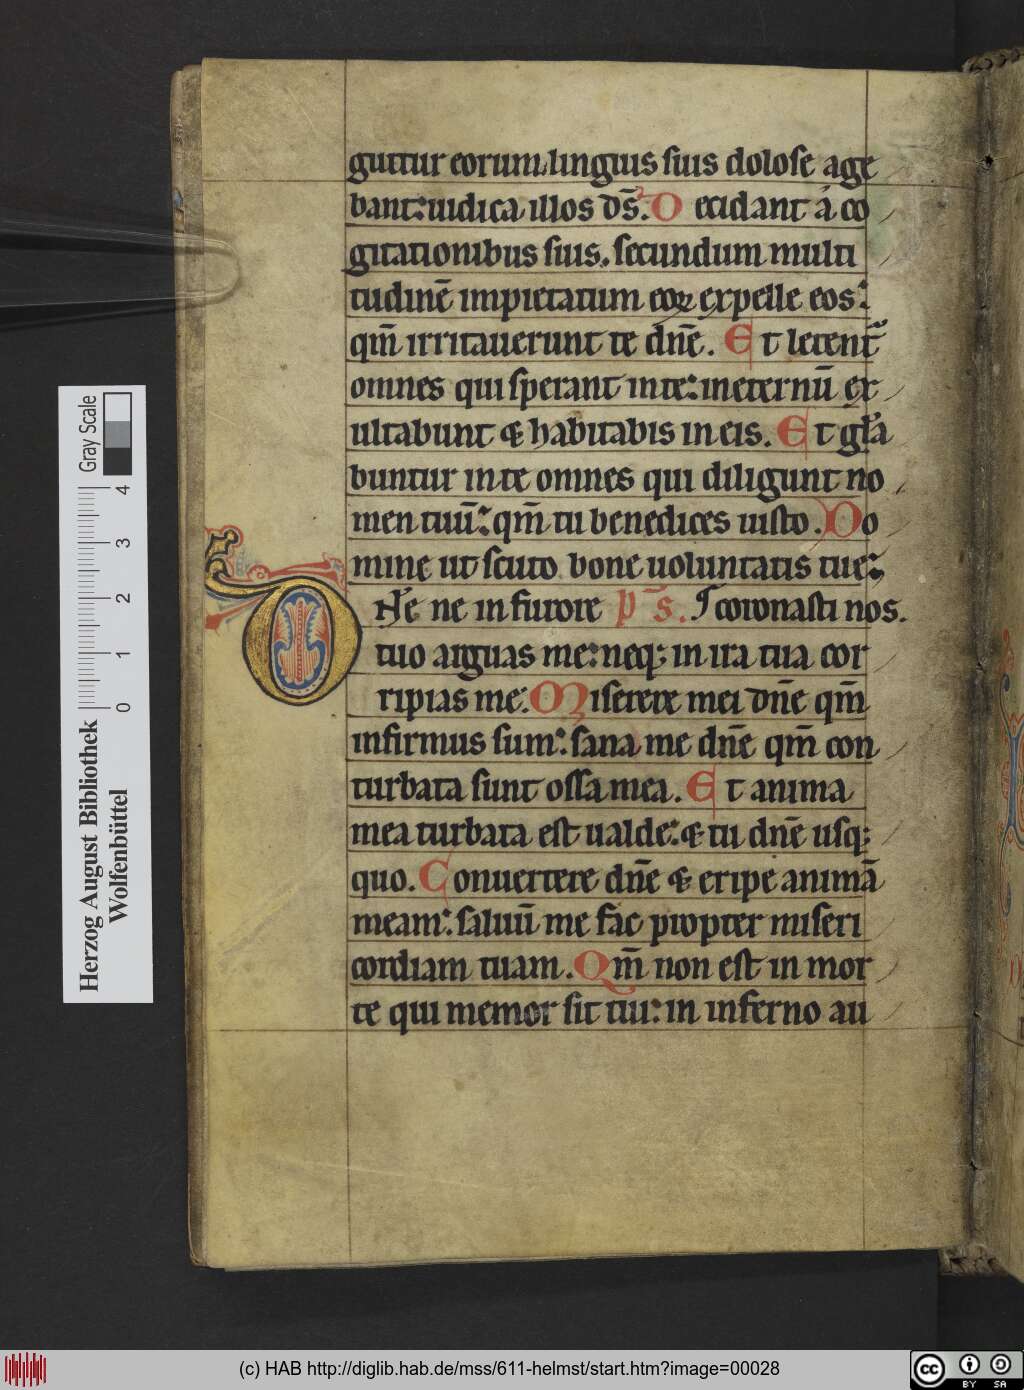 guttur eorum. linguis suis dolose age
bant: iudica illos ds̄. D ecidant a co
gitationibus suis. secundum multi
tudinē impietatum eoꝝ expelle eos:
qm̄ irritauerunt te dn̄e. E t letent᷑
omnes qui sperant in te: in eternū ex
ultabunt ⁊ habitabis in eis. E t gl̄a
buntur in te omnes qui diligunt no
men tuū: qm̄ tu benedices iusto. Do
mine ut scuto bone uoluntatis tue
D N̄e ne in furore p̄ s. coronasti nos.
tuo arguas me: neqꝫ in ira tua cor
ripias me. Miserere mei dn̄e qm̄
infirmus sum: sana me dn̄e qm̄ con
turbata sunt ossa mea. E t anima
mea turbata est ualde: ⁊ tu dn̄e usqꝫ
quo. Conuertere dn̄e ⁊ eripe animā
meam: saluū me fac propter miseri
cordiam tuam. Qm̄ non est in mor
te qui memor sit tui: in inferno au
Herzog August Bibliothek
Wolfenbüttel
0 1 2 3 4
Gray Scale
(c) HAB http://diglib.hab.de/mss/611-helmst/start.htm?image=00028
cc BY SA